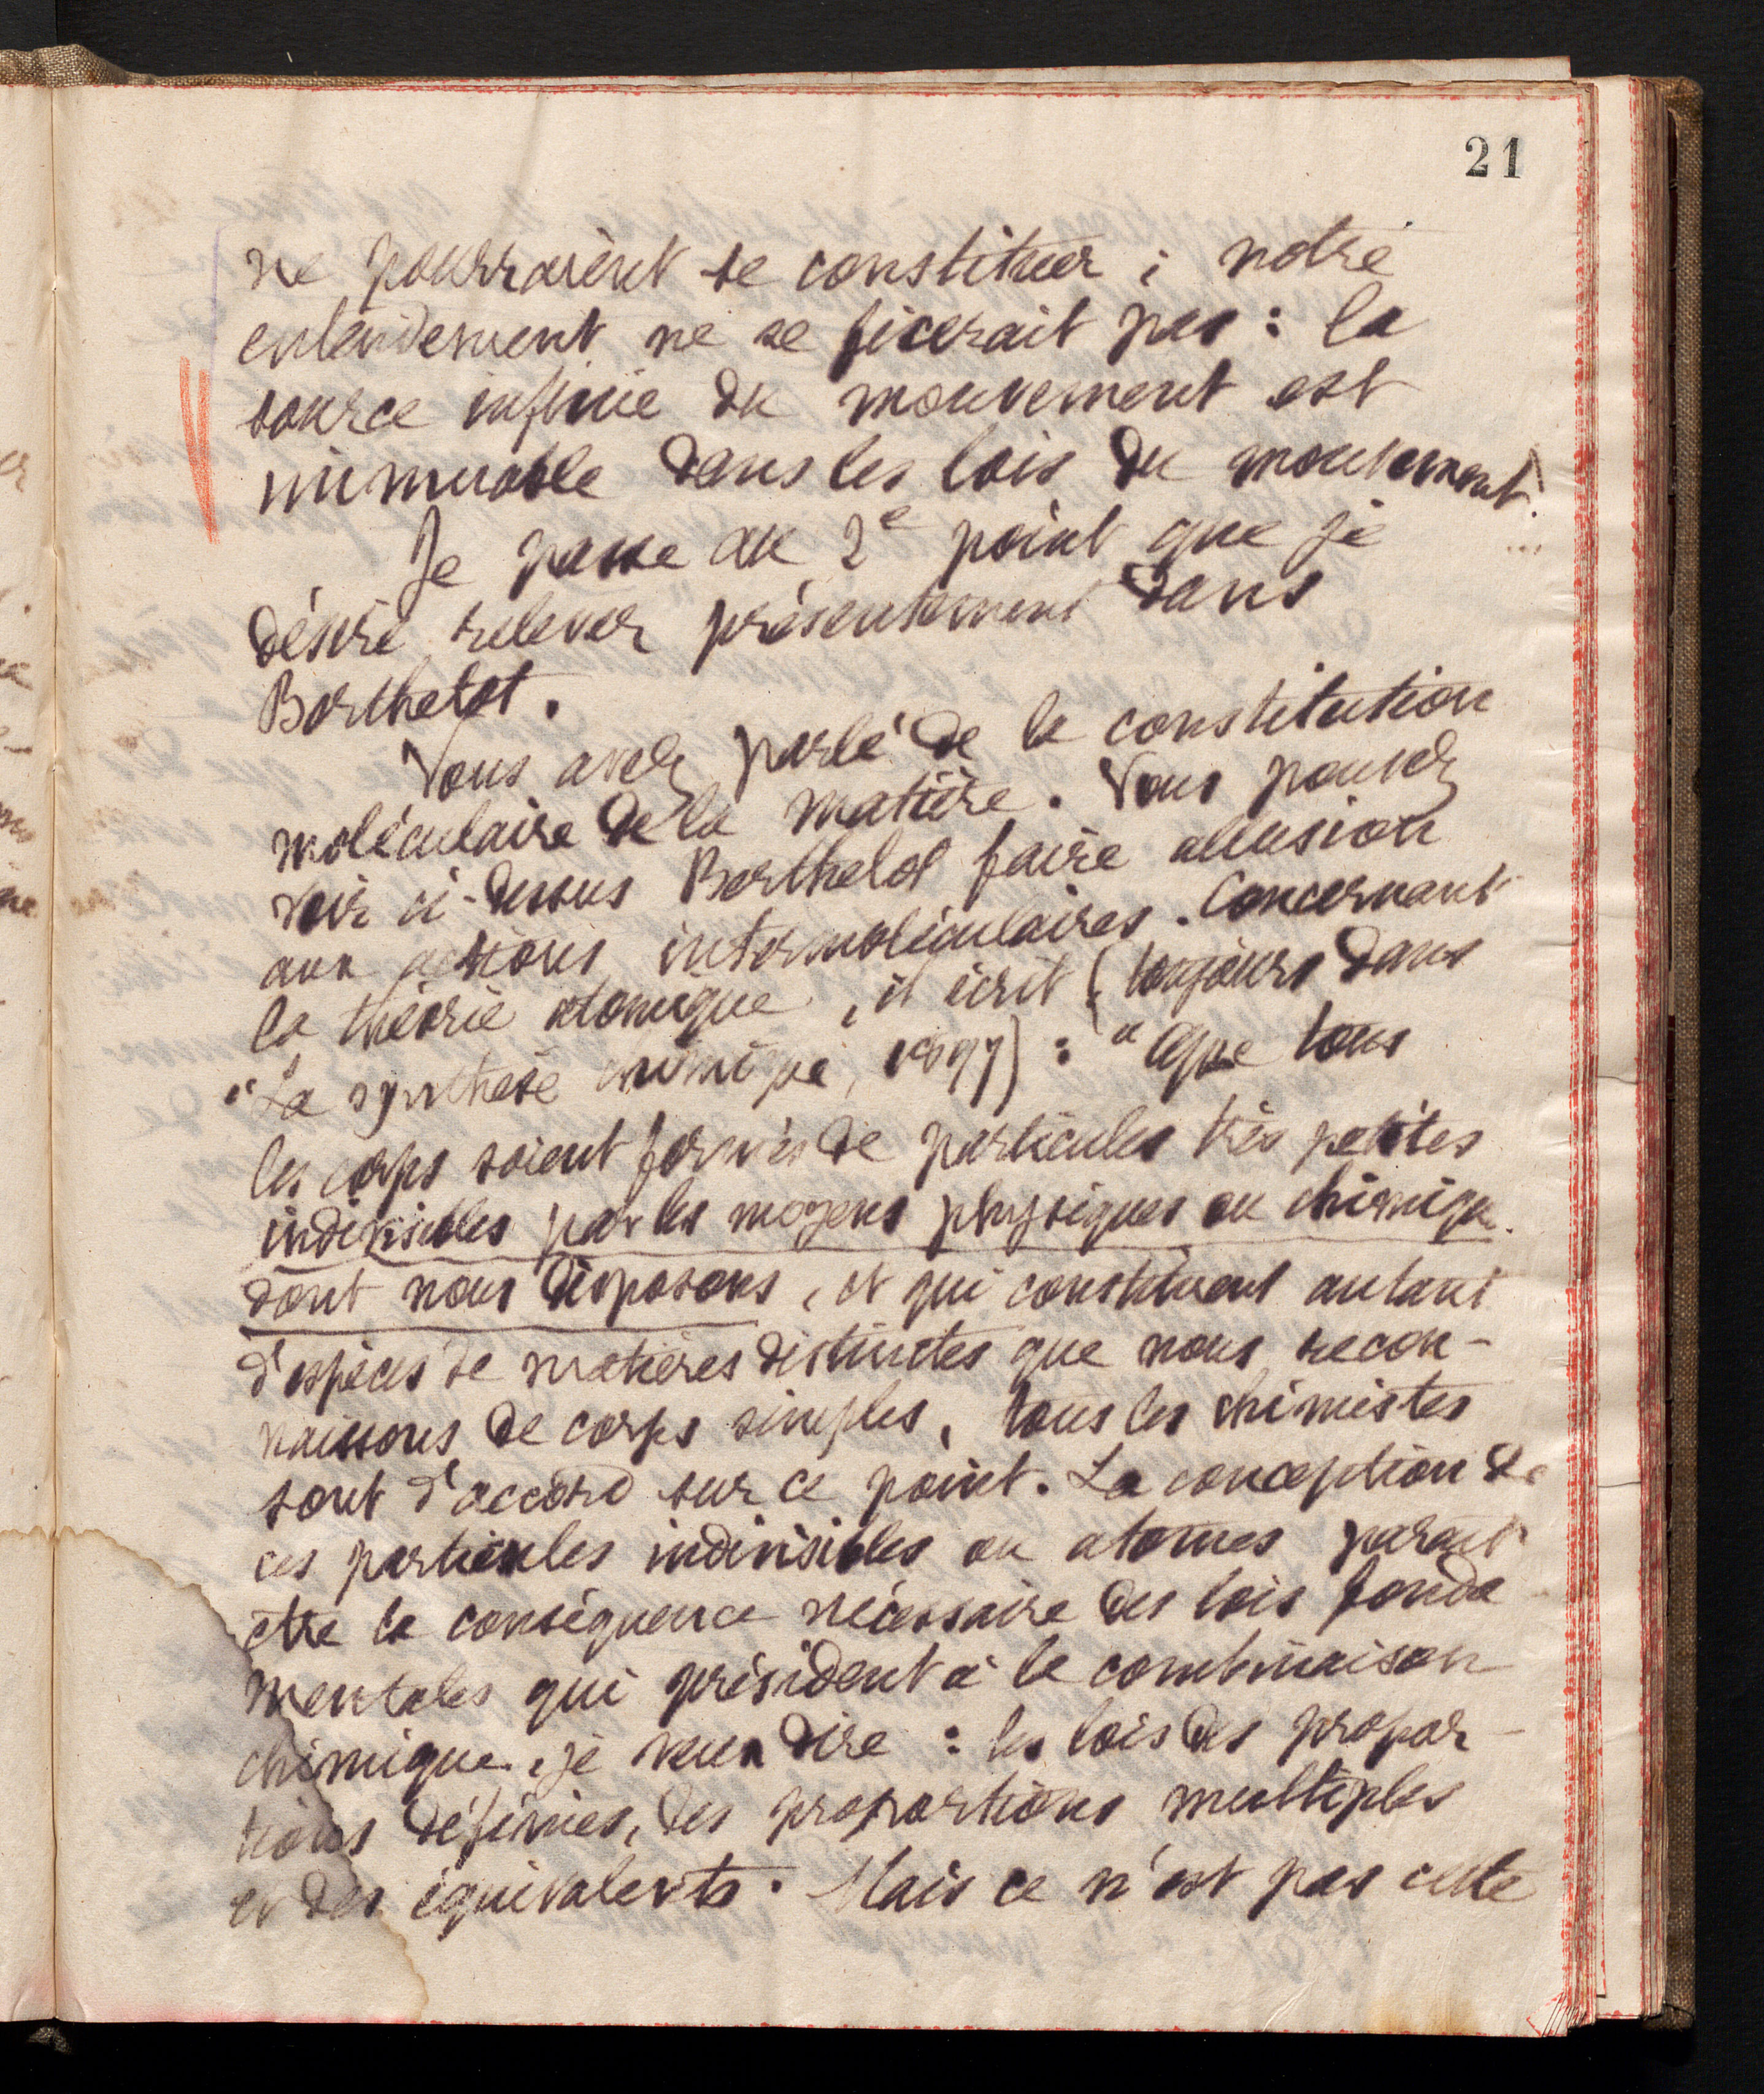 21
ne pourraient se constituer ; notre
entendement ne se fixerait pas : la
source infinie du mouvement est
immuable dans les lois du mouvement.
Je passe au 2e point que je
désire relever présentement dans
Berthelot.
Vous avez parlé de la constitution
moléculaire de la matière. Vous pouvez
voir ci-dessus Berthelot faire allusion
aux actions intermoléculaires. Concernant
la théorie atomique, il écrit (toujours dans
"La synthèse chimique, 1897) : "Que tous
les corps soient formés de particules très petites
indivisibles par les moyens physiques ou chimiqu.
dont nous disposons, et qui constituent autant
d'espèces de matières distinctes que nous recon-
naissons de corps simples, tous les chimistes
sont d'accord sur ce point. La conception de
ces particules indivisibles ou atomes parait
être la conséquence nécessaire des lois fonda
mentales qui président à la combinaison
chimique, je veux dire : les lois des propor-
tions définies, des proportions multiples
et des équivalents. Mais ce n'est pas cette